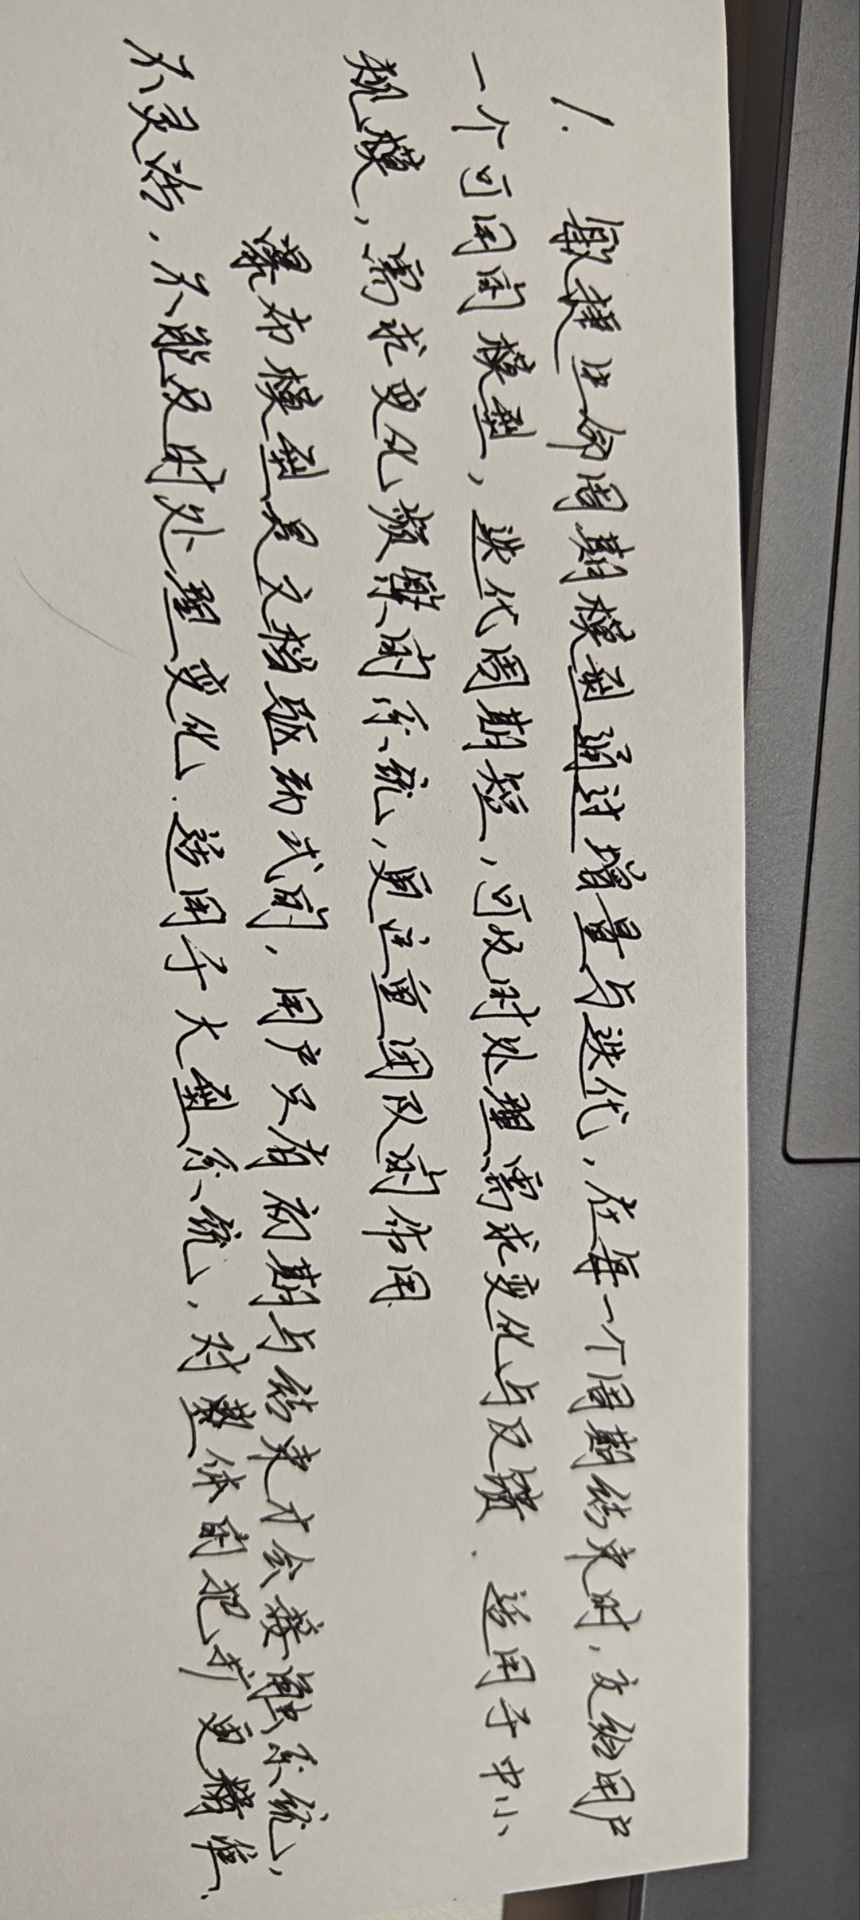 1. 敏捷生命周期模型通过增量与迭代，在每一个周期结束时，交给用户
一个可用的模型，迭代周期短，可及时处理需求变化与反馈．适用于中小
规模，需求变化频繁的系统，更注重团队的作用．
瀑布模型是文档驱动式的，用户只有初期与结束才会接触系统，
不灵活，不能及时处理变化．适用于大型系统，对整体的把扩更精准．